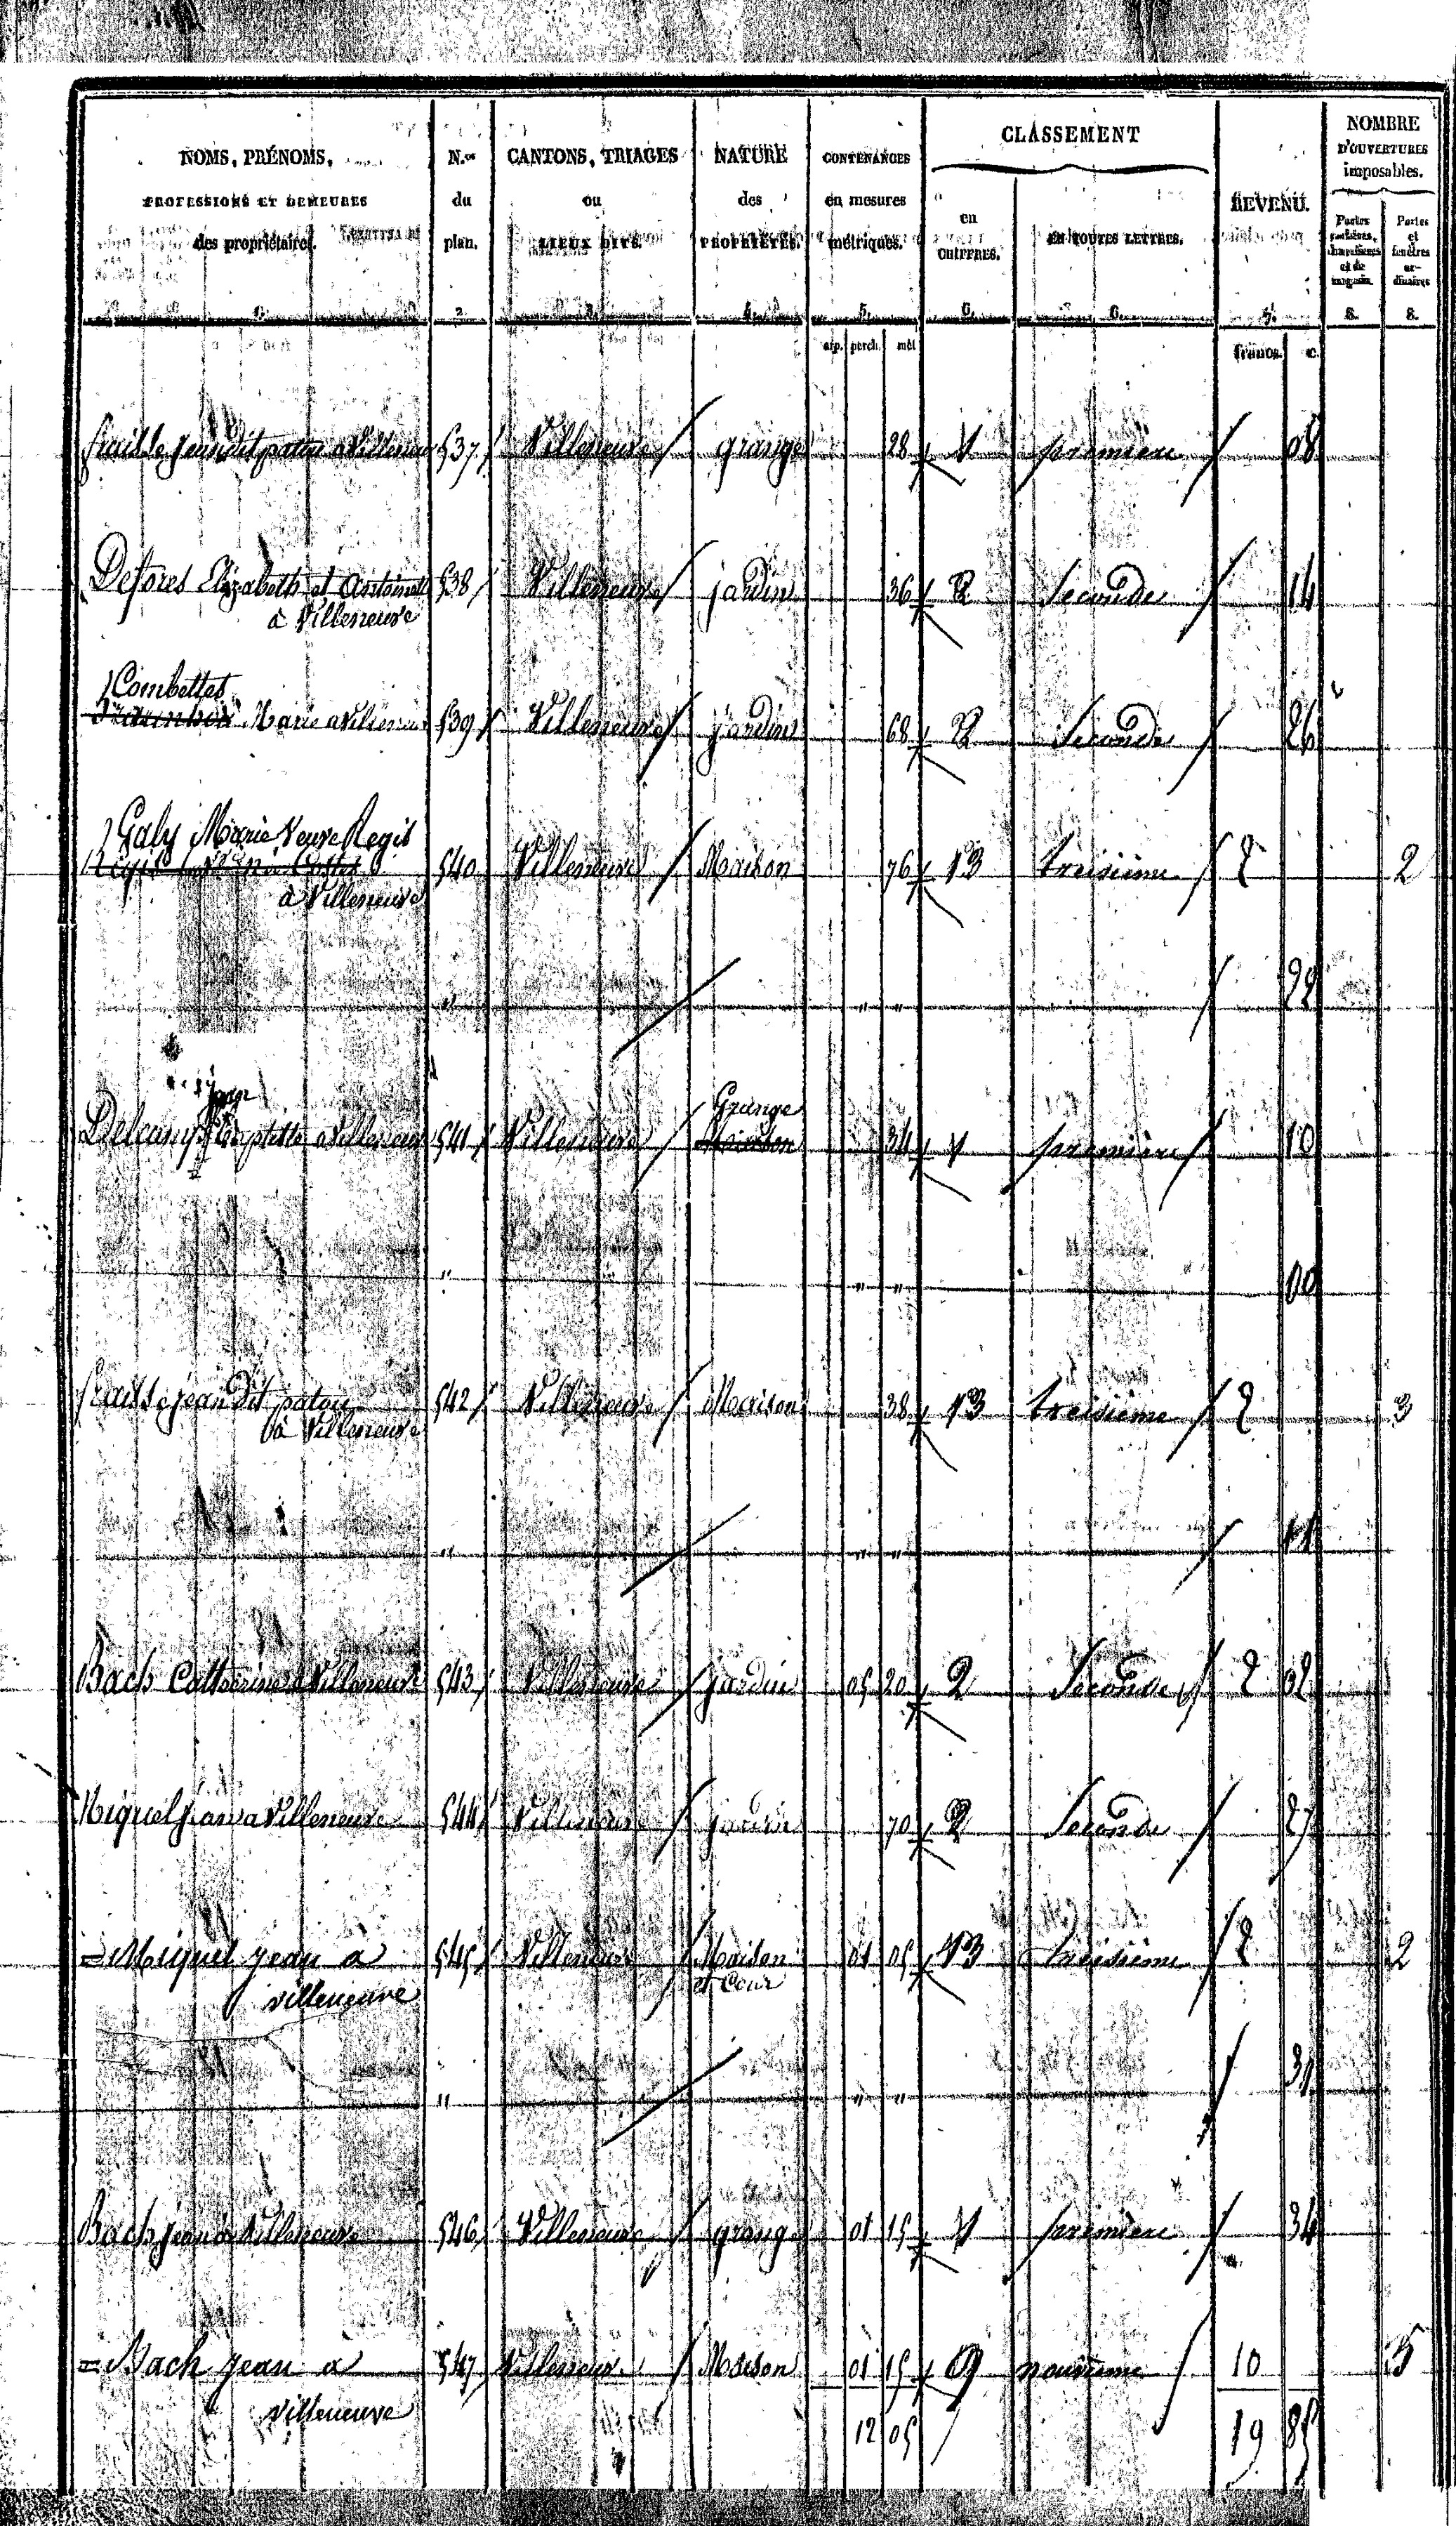 NOMS, PRÉNOMS, PROFESSIONS ET DEMEURES des propriétaires. 1.
N.os du plan. 2.
CANTONS, TRIAGES ou LIEUX DITS. 3.
NATURE des PROPRIÉTÉS. 4.
CONTENANCES en mesures métriques. 5.
CLASSEMENT
en CHIFFRES. 6.
EN TOUTES LETTRES. 6.
REVENU. 7.
NOMBRE D'OUVERTURES imposables.
Portes cochères, charretières et de magasin. 8.
Portes et fenêtres ordinaires 8.
arp. perch. mèt francs. c.
jean dit a Villeneuve 537 Villeneuve grange 28 1 première 08
Defores Elizabeth et Antoinette 538 Villeneuve jardin 36 2 Seconde 14
à Villeneuve
Combettes
Marie a Villeneuve 539 Villeneuve jardin 68 2 Seconde 26
Galy Marie Veuve Regis
540 Villeneuve Maison 76 13 treisieme 2 2
à Villeneuve
" " " 22
jean Grange
Delcamp a Villeneuve 541 Villeneuve Maison 34 1 première 10
" " " 00
jean dit 542 Villeneuve Maison 38 13 treisieme 2 3
à Villeneuve
" " " 11
Bach Catherine a Villeneuve 543 Villeneuve jardin 05 20 2 Seconde 2 02
Miquel jean a Villeneuve 544 Villeneuve jardin 70 2 Seconde 27
= Miquel jean a 545 Villeneuve Maison 01 05 13 treisieme 2 2
villeneuve et Cour
" " " 31
Bach jean a Villeneuve 546 Villeneuve grange 01 15 1 première 34
= Bach jean a 547 Villeneuve Maison 01 15 9 neuvieme 10 5
villeneuve 12 05 19 85